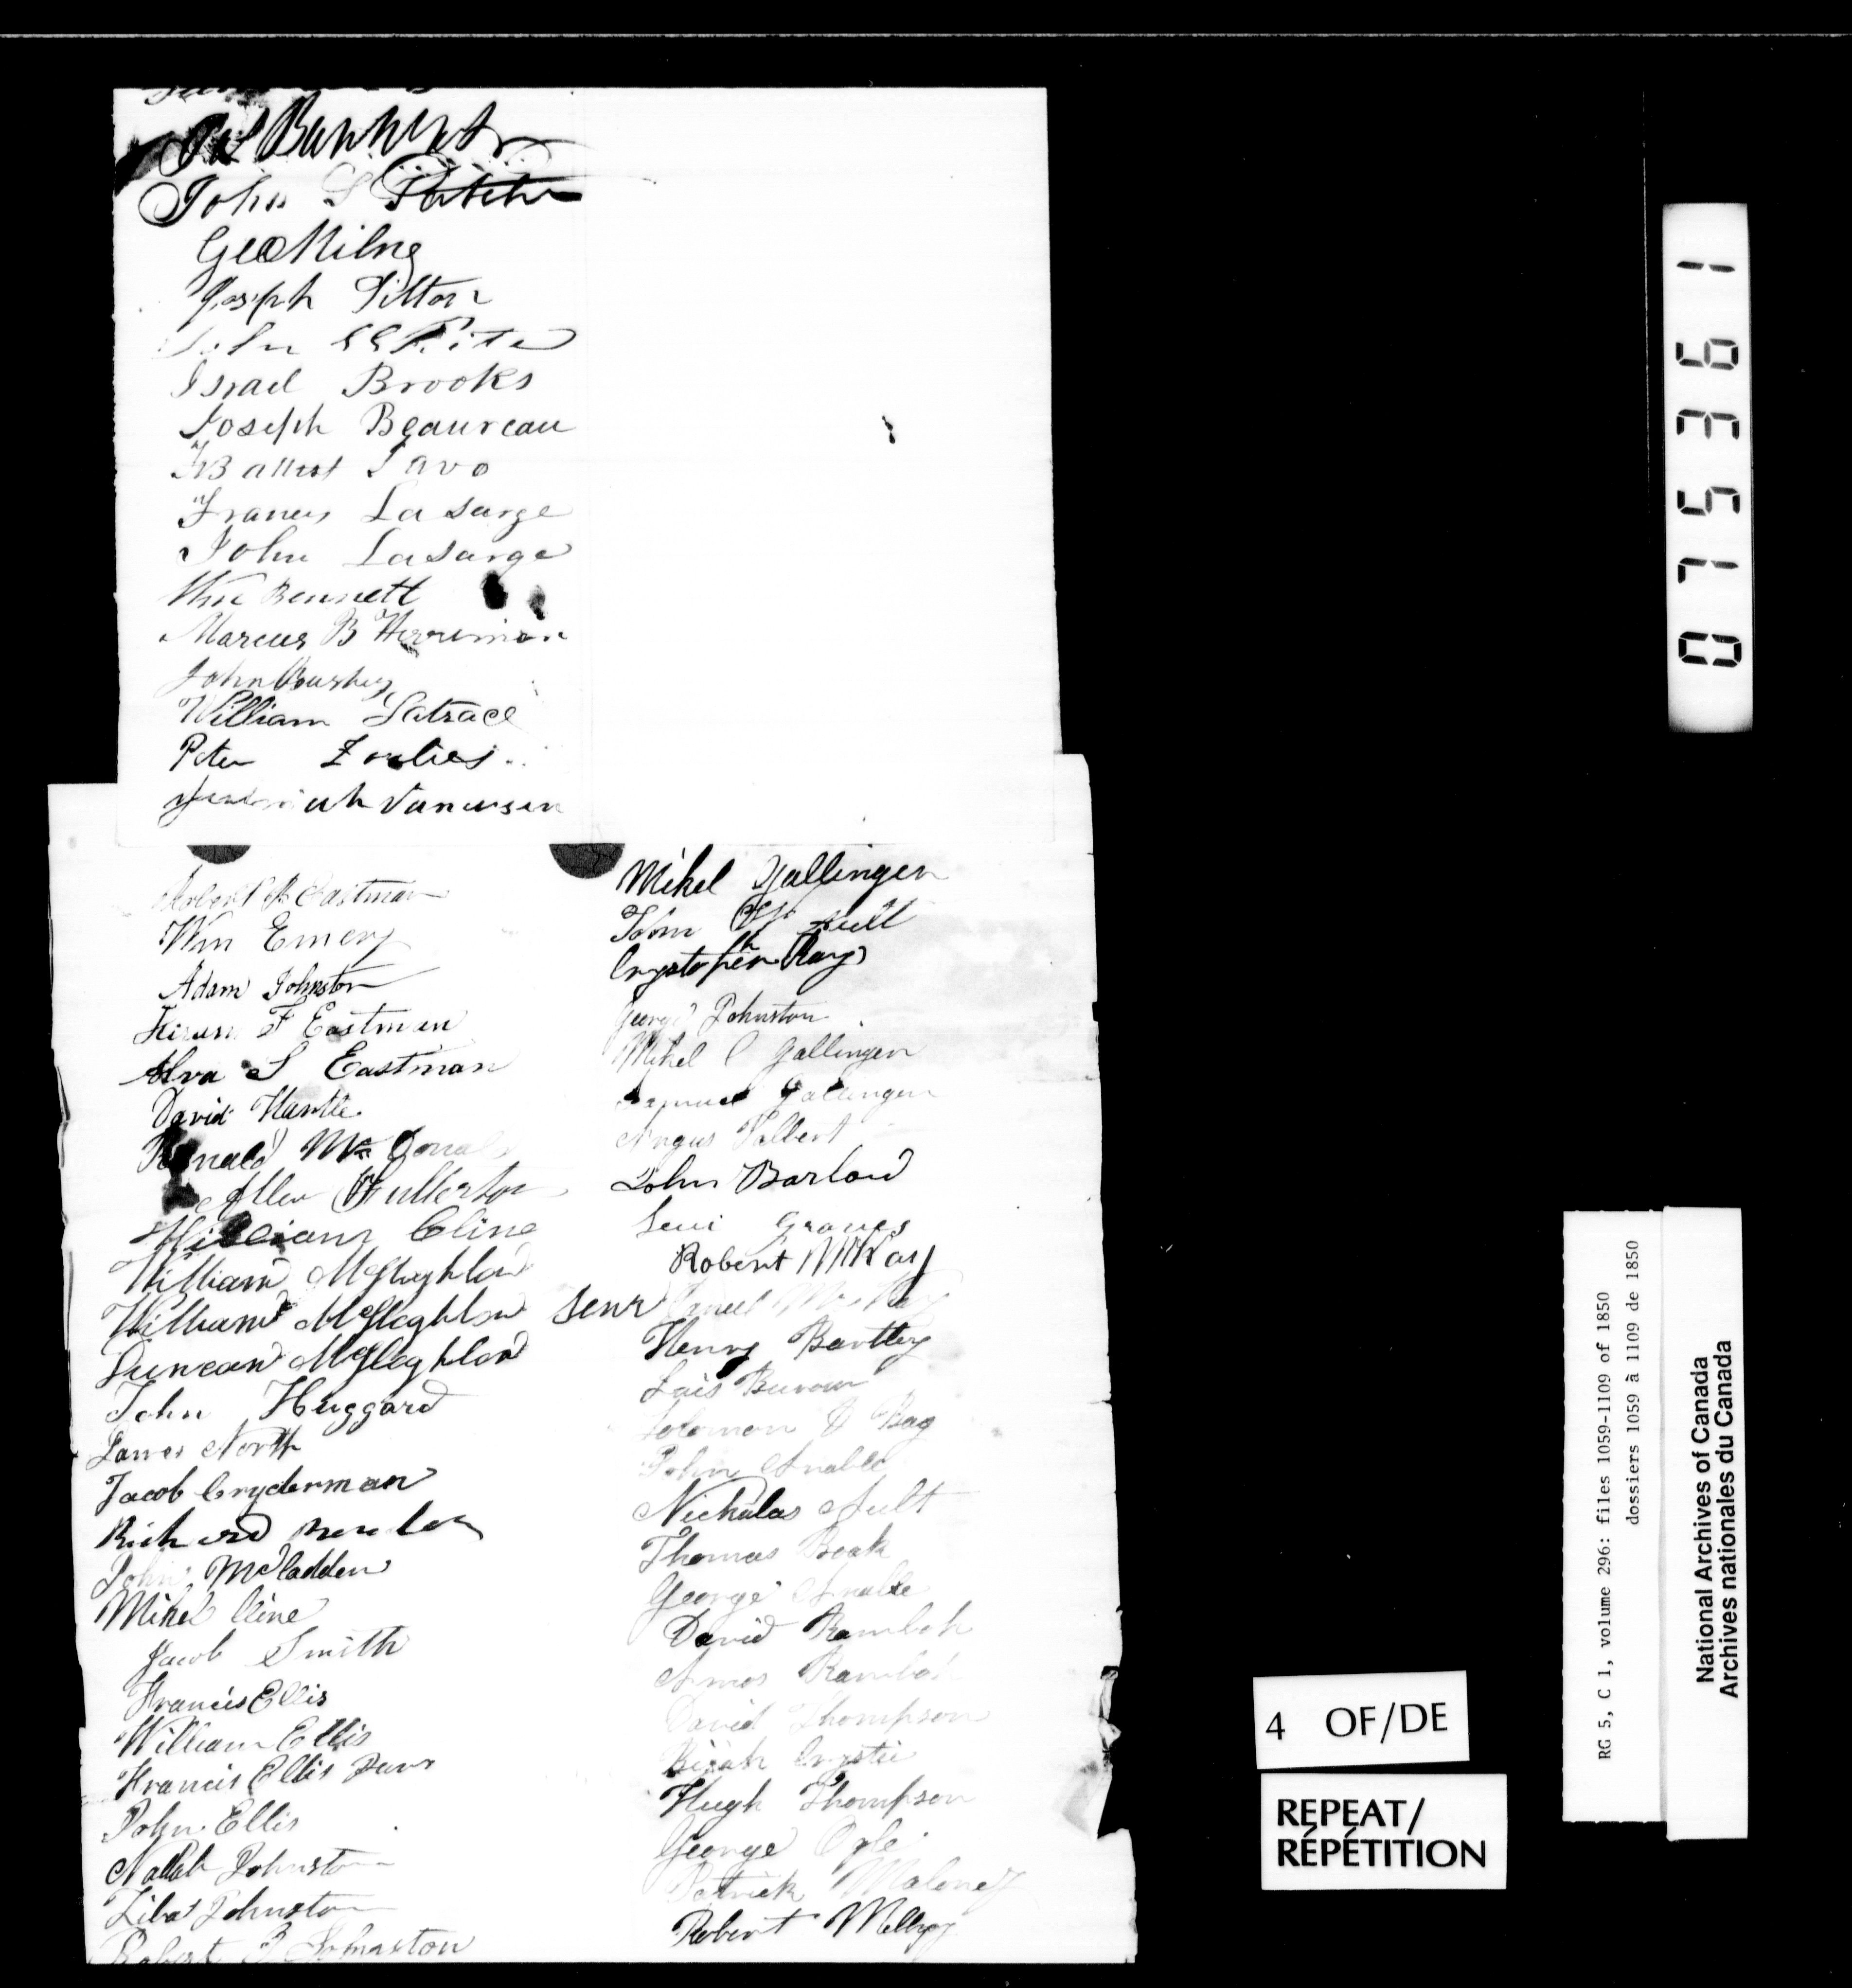 John S
Geo Milne
Joseph Titton
John White
Israel Brooks
Joseph Beaureau
Francis La Sarge
John La Sarge
Wm Bennett
Marcus B Herriman
John Boushey
William Latrace
Peter
Jeremiah Vanursen
Robert R Eastman
Wm Emery
Adam Johnston
Hiram F Eastman
Alva S Eastman
David Hantle
Ronald McDonal
Allen Fullerton
William Cline
William McGloghlon
William McGloghlon Senr
Duncan McGloghlon
John Huggard
James North
Jacob Cryderman
Richard
John McFadden
Mikel Cline
Jacob Smith
Francis Ellis
William Ellis
Francis Ellis Junr
John Ellis
Johnston
Ziba Johnston
Robert Johnston
Mikel Gallinger
John Ault
Crystopher Ray
George Johnston
Mikel C Gallinger
Samuel Gallinger
Angus Talbert
John Barlow
Levi Graves
Robert McKay
Daniel McKay
Henry Barttley
Solomon
John Anable
Nickulas Ault
Thomas Beak
George Anable
David Ramboh
Amos Ramboh
David Thompson
Crystie
Hugh Thompson
George Ogle
Patrick Maloney
Robert
0 7 5 3 6 1
4 OF/DE
REPEAT/
RÉPÉTITION
RG 5, C 1, volume 296: files 1059-1109 of 1850
dossiers 1059 à 1109 de 1850
National Archives of Canada
Archives nationales du Canada